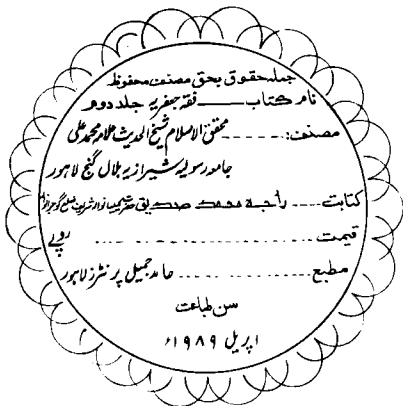 جملہ حقوق بحق مصنف محفوظ
نام کتاب ــــــ فقہ جعفریہ جلد دوم
مصنف: ۔۔۔۔۔۔ محقق الاسلام شیخ الحدیث علامہ محمد علی
جامعہ رسولیہ شیرازیہ بلال گنج لاہور
کتابت ۔۔۔۔ راجہ محمد صدیق حضرت کیلیانوالہ شریف ضلع گوجرانوالہ
قیمت ۔۔۔۔۔۔۔۔۔۔۔۔۔۔۔۔ روپے
مطبع ۔۔۔۔۔۔۔۔۔۔ حامد جمیل پرنٹرز لاہور
سن طباعت
اپریل ۱۹۸۹ء